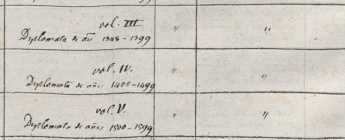 vol. III " "
Diplomata de añ 1348-1399
vol. IV. " "
Diplomata de años 1400-1499
vol. V. " "
Diplomata de años 1500-1599